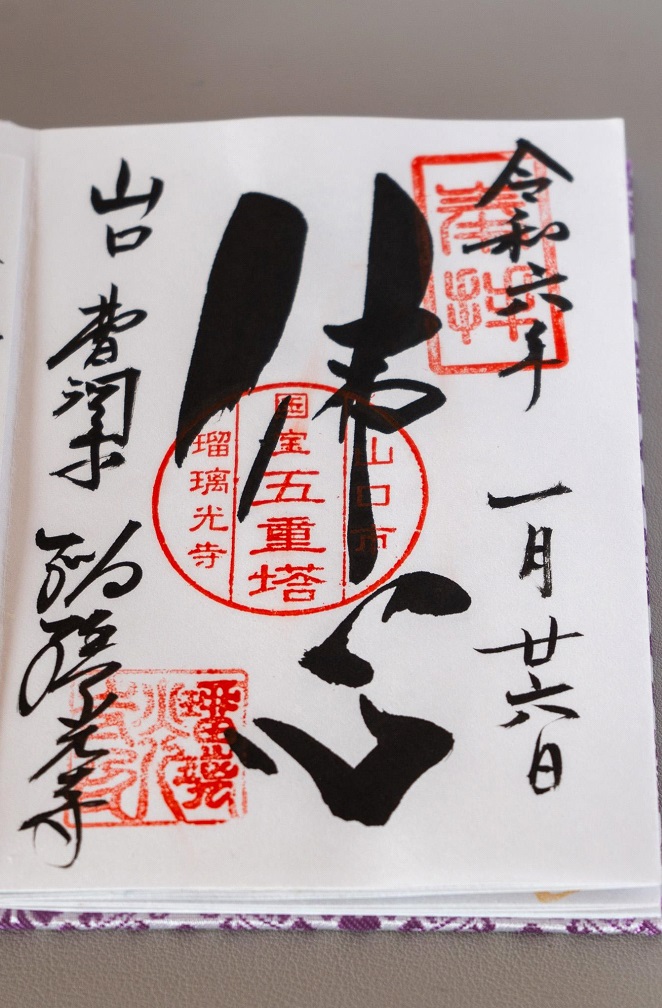 奉拝
令和六年
一月廿六日
佛心
山口市
国宝
五重塔
瑠璃光寺
山口
曹洞宗
瑠璃光寺
瑠璃光寺